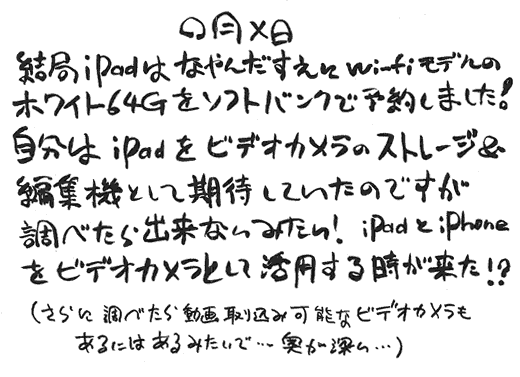 〇月×日
結局iPadはなやんだすえにwi-fiモデルの
ホワイト64Gをソフトバンクで予約しました!
自分はiPadをビデオカメラのストレージ&
編集機として期待していたのですが
調べたら出来ないみたい! iPadとiPhone
をビデオカメラとして活用する時が来た!?
(さらに調べたら動画取り込み可能なビデオカメラも
あるにはあるみたいで…奥が深い…)